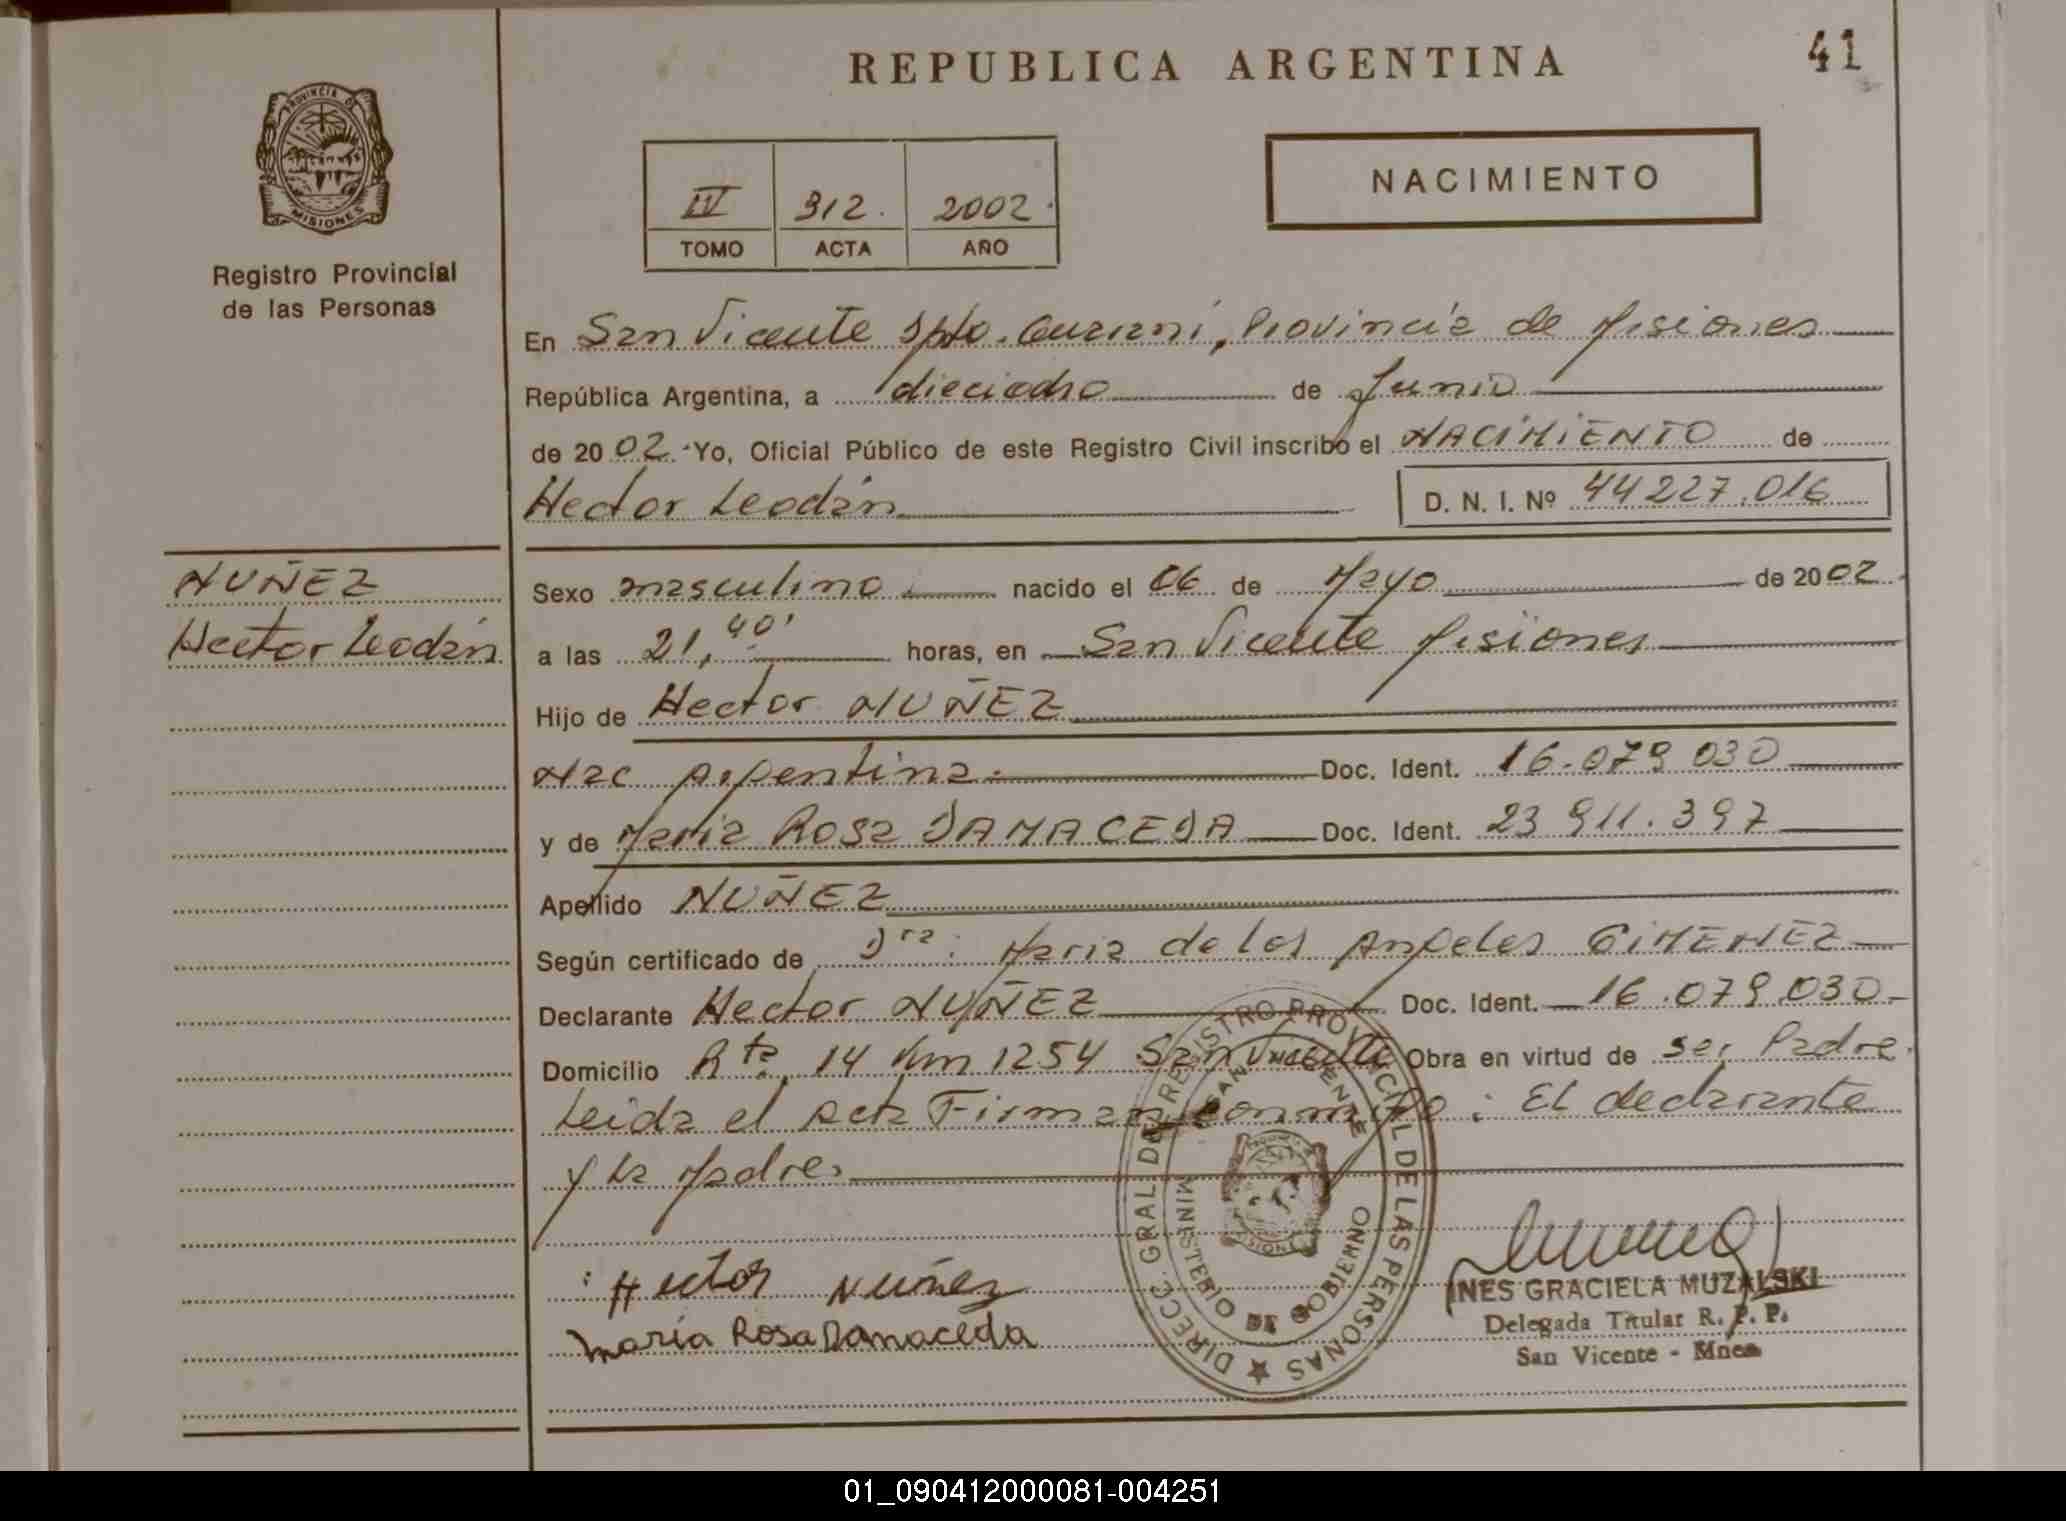 REPUBLICA ARGENTINA
41
PROVINCIA DE
MISIONES
Registro Provincial
de las Personas
IV 312. 2002.
TOMO ACTA AÑO
NACIMIENTO
En San Vicente Dpto. Guarani, Provincia de Misiones
República Argentina, a dieciocho de Junio
de 2002 Yo, Oficial Público de este Registro Civil inscribo el NACIMIENTO de
Hector Leodán
D. N. I. Nº 44 227.016
NUÑEZ
Hector Leodán
Sexo masculino nacido el 06 de Mayo de 2002
a las 21,40' horas, en San Vicente Misiones
Hijo de Hector NUÑEZ
Nac Argentina. Doc. Ident. 16.079 030
y de Maria Rosa DAMACEDA Doc. Ident. 23 911.397
Apellido NUÑEZ
Según certificado de Dra: Maria de los Angeles GIMENEZ
Declarante Hector NUÑEZ Doc. Ident. 16.079.030
Domicilio Rta. 14 Km 1254 San Vicente Obra en virtud de ser Padre.
Leida el acta Firman conmigo: El declarante
y la Madre
Hector Nuñez
maria Rosa Damaceda
DIRECC. GRAL DE REGISTRO PROVINCIAL DE LAS PERSONAS
SAN VICENTE
MINISTERIO DE GOBIERNO
MISIONES
INES GRACIELA MUZALSKI
Delegada Titular R. P. P.
San Vicente - Mnes
01_090412000081-004251